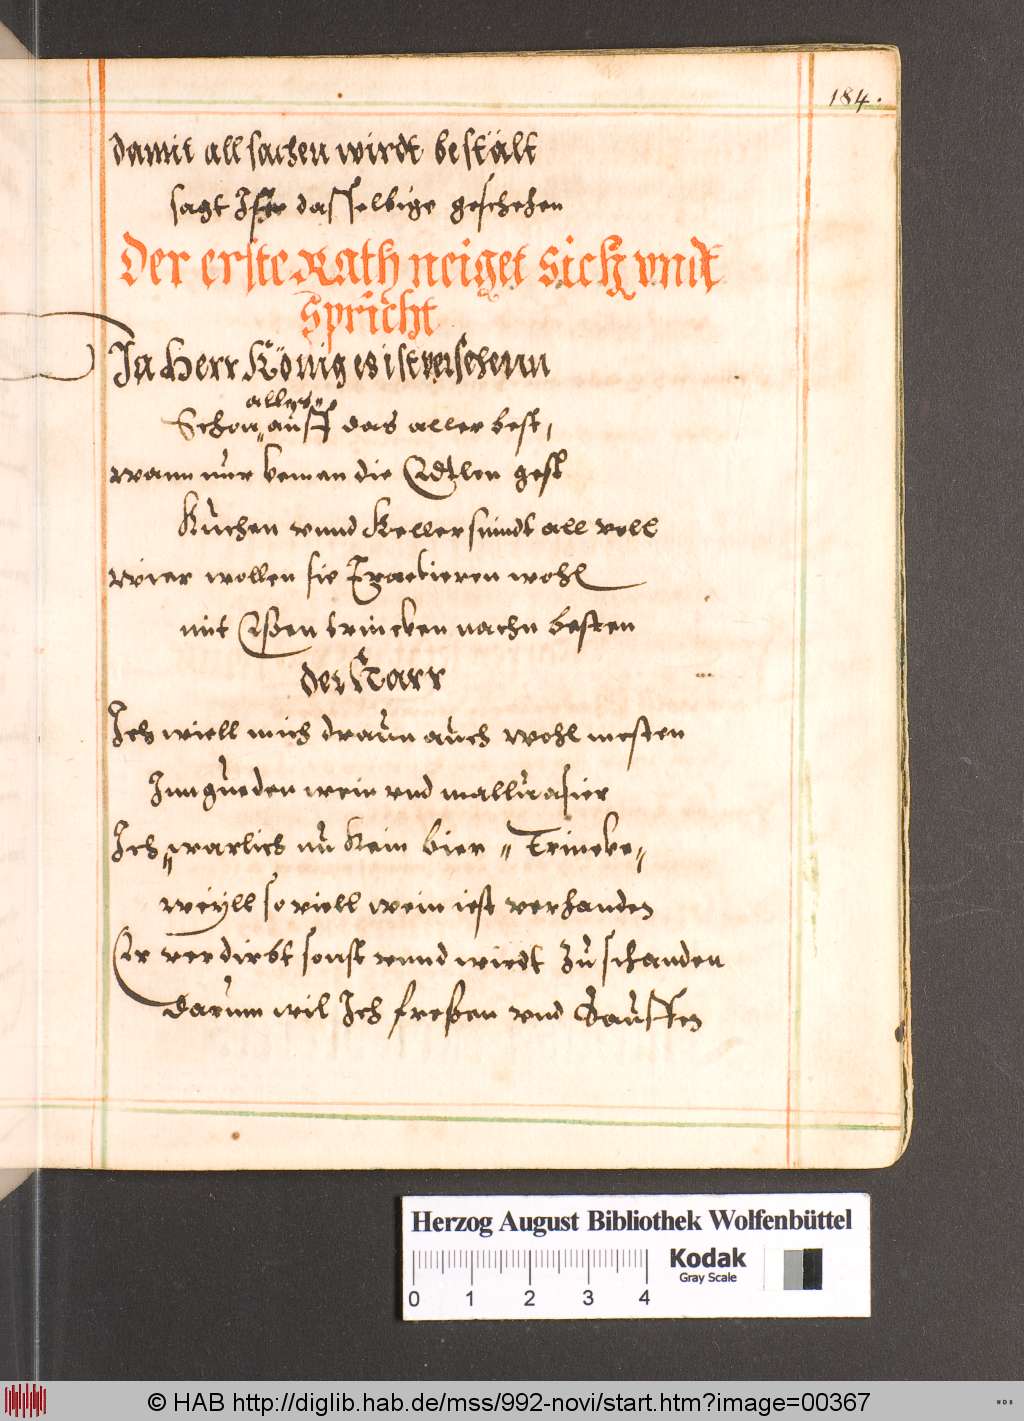 184.
damit all sachen wirdt bestält
sagt Ihr dasselbige geschehen
Der erste Rath neiget sich vndt
spricht
Ja Herr König es ist versehenn
alles
Schon auff das aller best,
wann nur keman die Edtlen gest
Kuchen vnnd Keller sinndt all voll
wier wollen sie Tractieren wohl
mit Eßen trincken nachn besten
der Narr
Ich wiell mich draun auch wohl mesten
Inn gueden wein vnd malluasier
Ich warlich nu kein bier Trincke
weyll so viell wein iest verhanden
Er verdirbt sonst vnnd wirdt zu schanden
darum wil Ich freßen vnd Sauffen
Herzog August Bibliothek Wolfenbüttel
Kodak
Gray Scale
0 1 2 3 4
© HAB http://diglib.hab.de/mss/992-novi/start.htm?image=00367